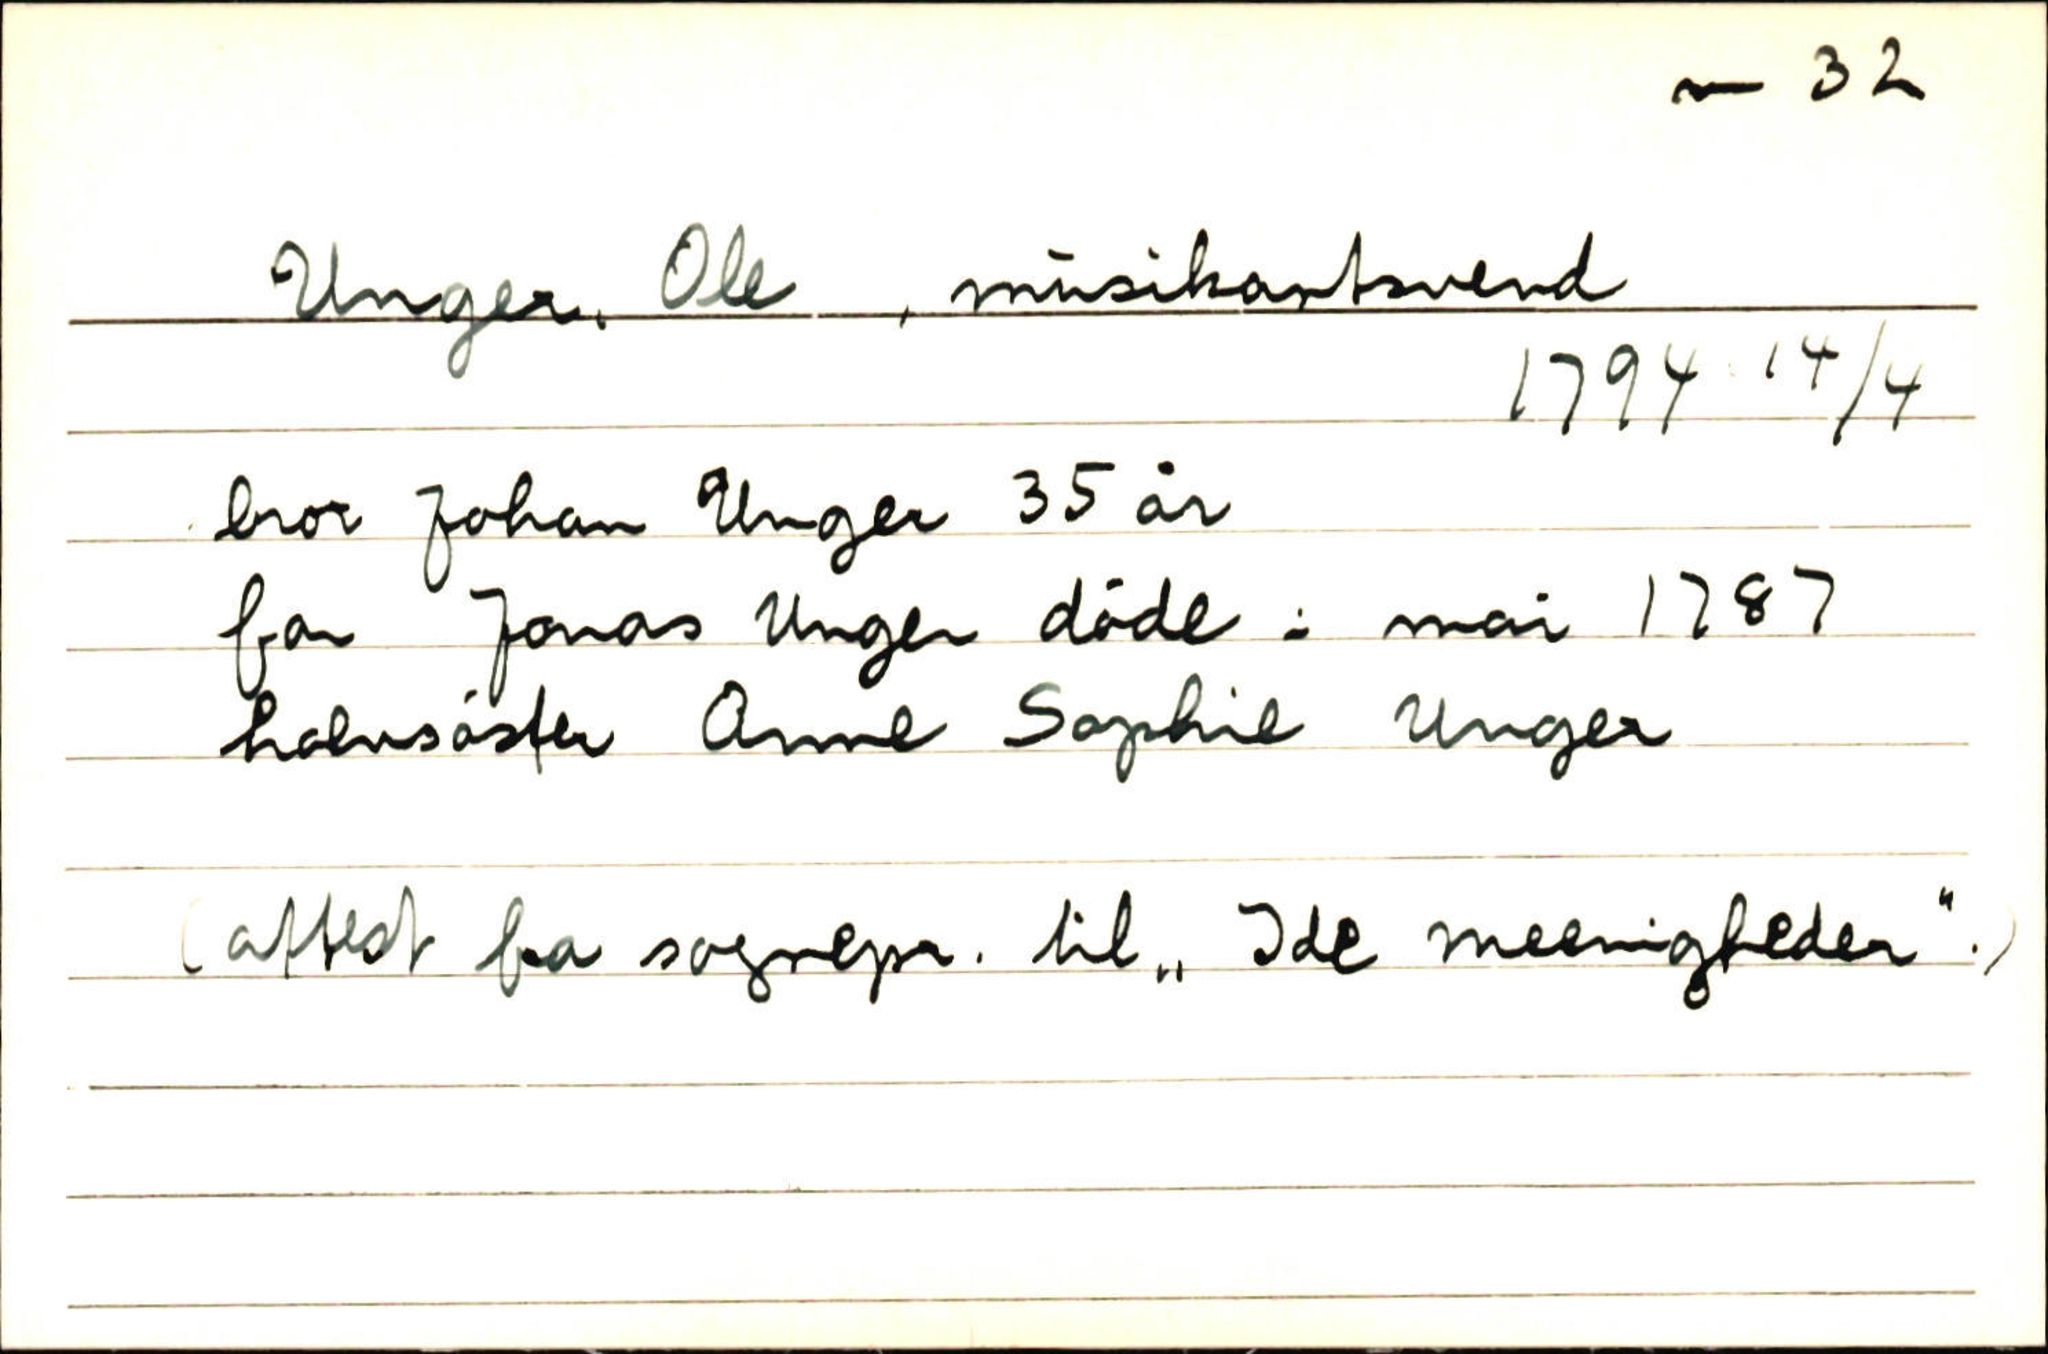 ~ 32
Unger, Ole , musikantsvend
1794 14/4
bror Johan Unger 35 år
far Jonas Unger döde i mai 1787
halvsöster Anne Sophie Unger
(attest fra sognepr. til „Ide meenigheder“.)